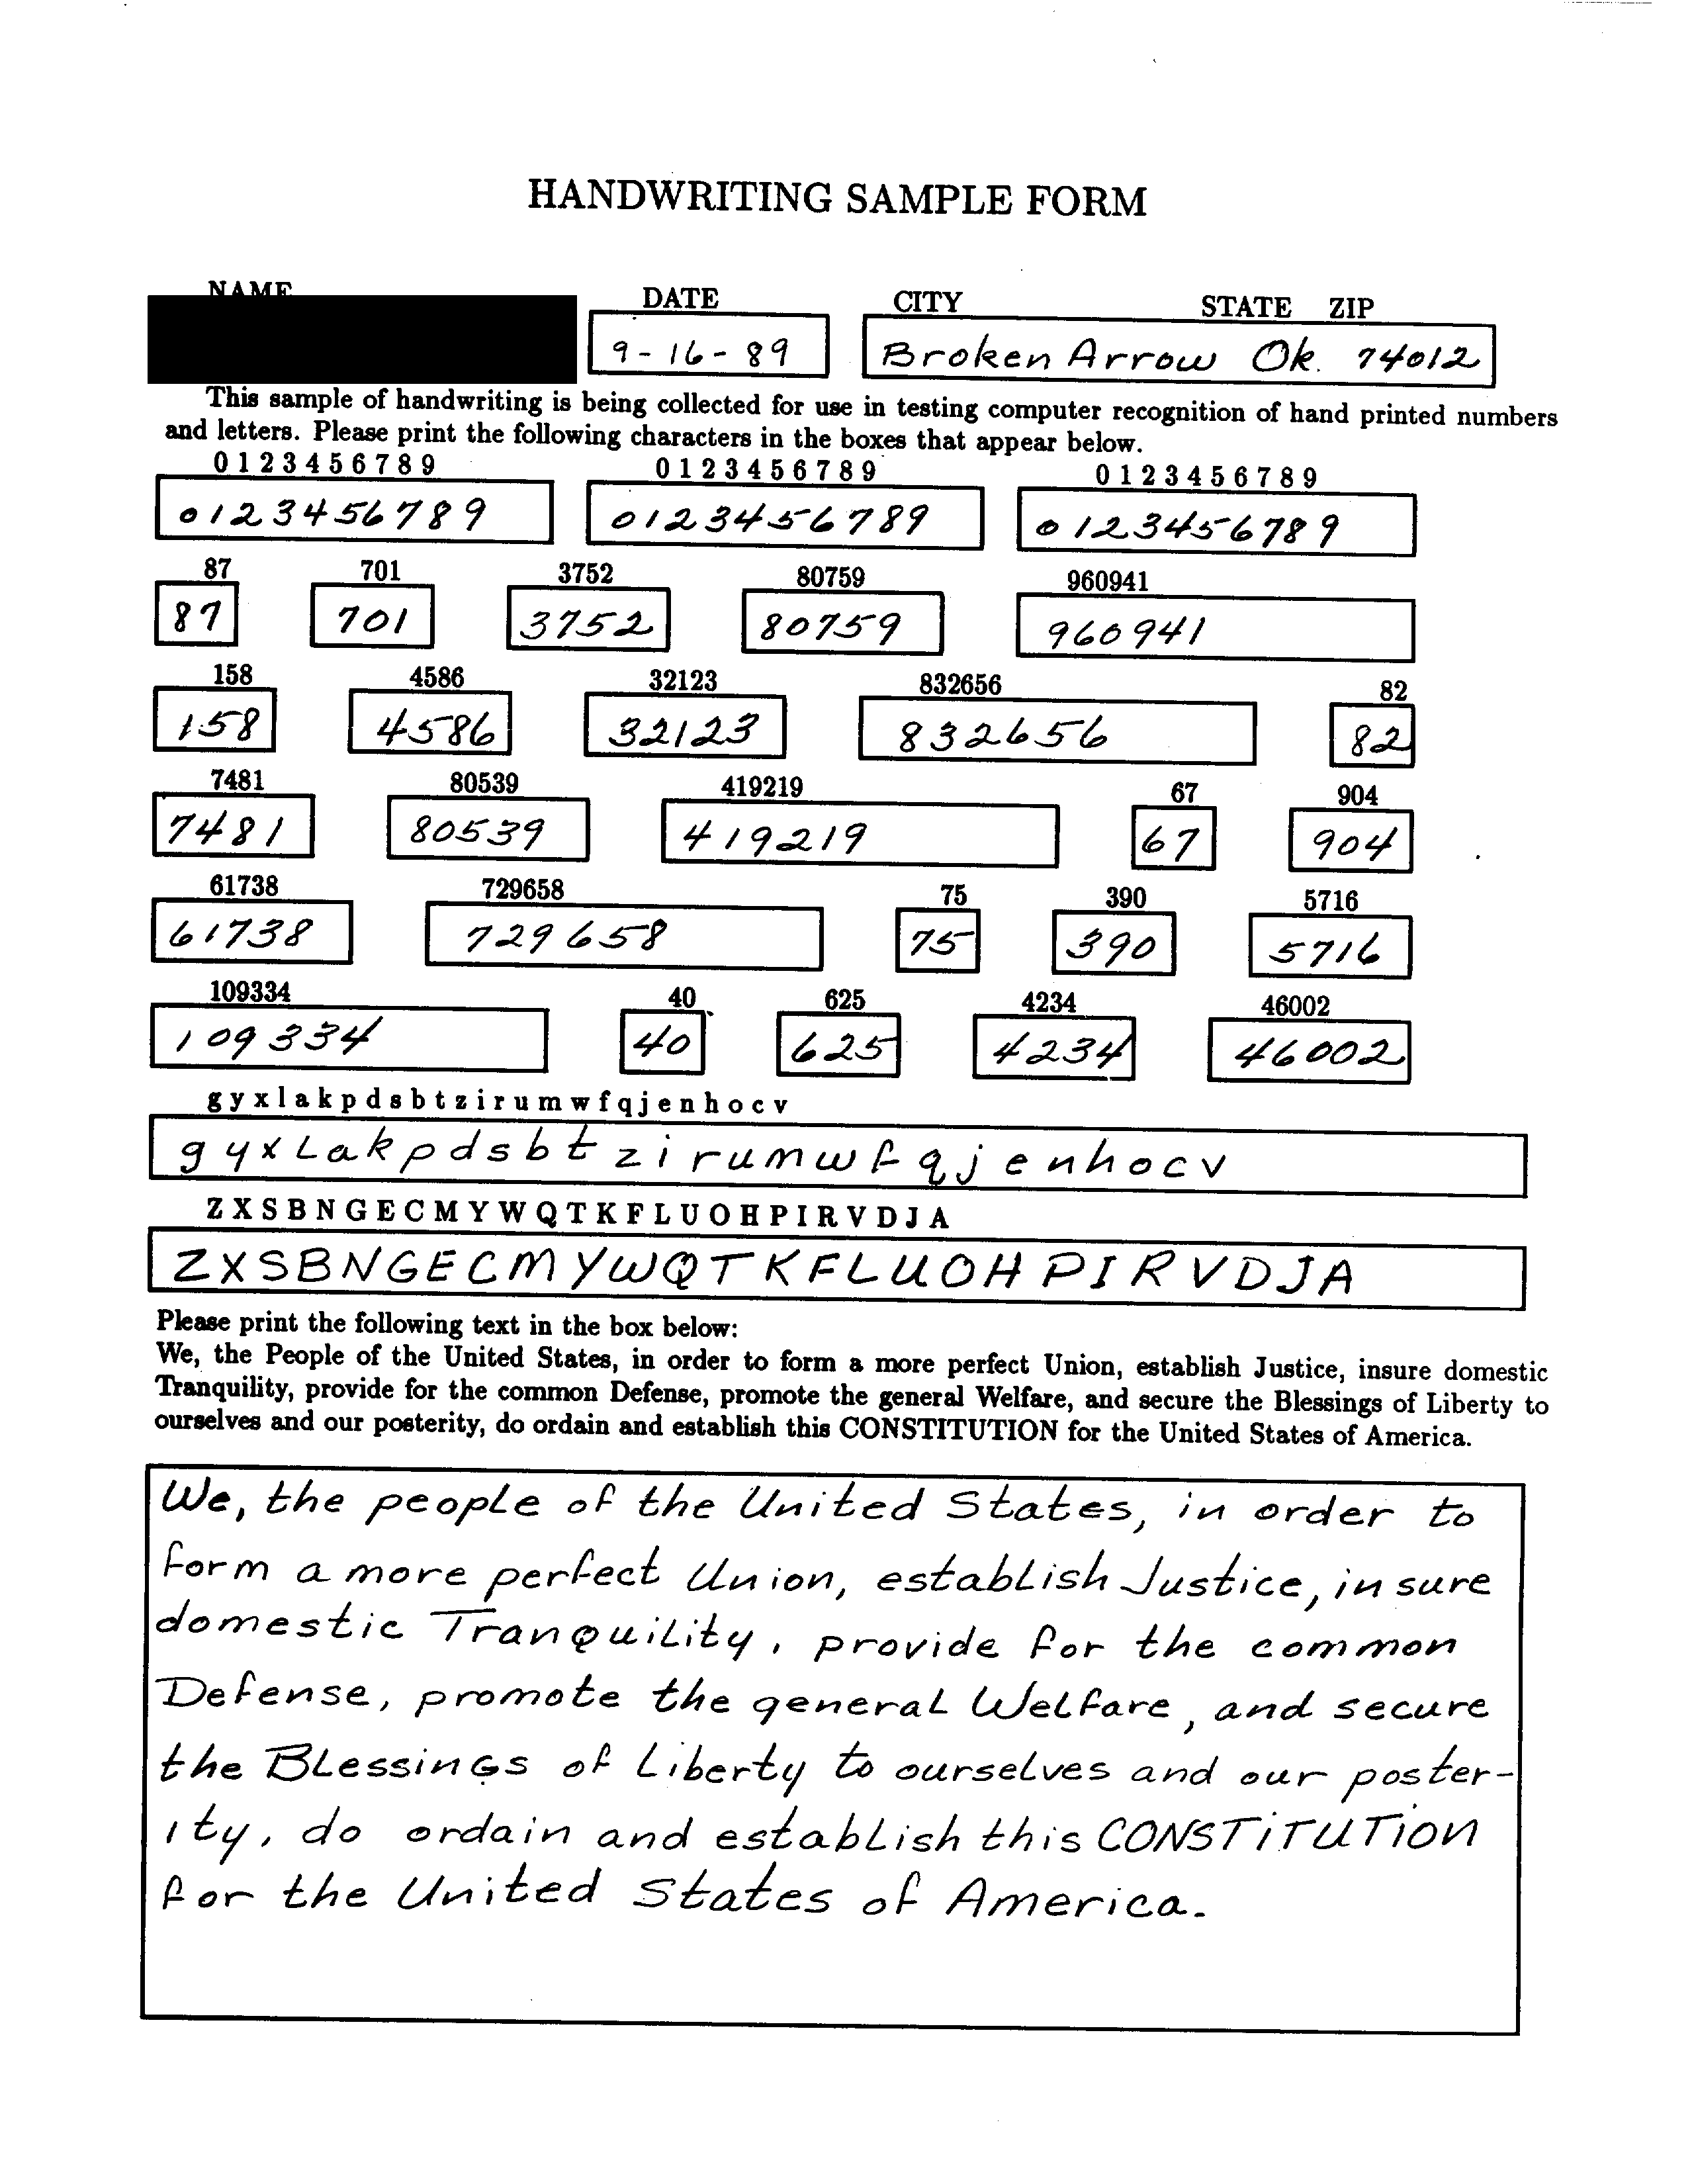 HANDWRITING SAMPLE FORM
NAME DATE CITY STATE ZIP
9-16-89 Broken Arrow Ok. 74012
This sample of handwriting is being collected for use in testing computer recognition of hand printed numbers
and letters. Please print the following characters in the boxes that appear below.
0 1 2 3 4 5 6 7 8 9 0 1 2 3 4 5 6 7 8 9 0 1 2 3 4 5 6 7 8 9
0123456789 0123456789 0123456789
87 701 3752 80759 960941
87 701 3752 80759 960941
158 4586 32123 832656 82
158 4586 32123 832656 82
7481 80539 419219 67 904
7481 80539 419219 67 904
61738 729658 75 390 5716
61738 729658 75 390 5716
109334 40 625 4234 46002
109334 40 625 4234 46002
g y x l a k p d s b t z i r u m w f q j e n h o c v
g y x L a k p d s b t z i r u m w f q j e n h o c v
Z X S B N G E C M Y W Q T K F L U O H P I R V D J A
Z X S B N G E C M Y W Q T K F L U O H P I R V D J A
Please print the following text in the box below:
We, the People of the United States, in order to form a more perfect Union, establish Justice, insure domestic
Tranquility, provide for the common Defense, promote the general Welfare, and secure the Blessings of Liberty to
ourselves and our posterity, do ordain and establish this CONSTITUTION for the United States of America.
We, the peopLe of the United States, in order to
form a more perfect Union, estabLish Justice, insure
domestic TranQuiLity, provide for the common
Defense, promote the generaL WeLfare, and secure
the BLessinGs of Liberty to ourseLves and our poster-
ity, do ordain and estabLish this CONSTiTUTiON
for the United States of America.